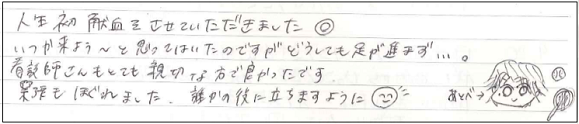 人生初献血をさせていただきました ◎
いつか来よう〜と思ってはいたのですがどうしても足が進まず…。
看護師さんもとても親切な方で良かったです
緊張もほぐれました、誰かの役に立ちますように
あとべ→